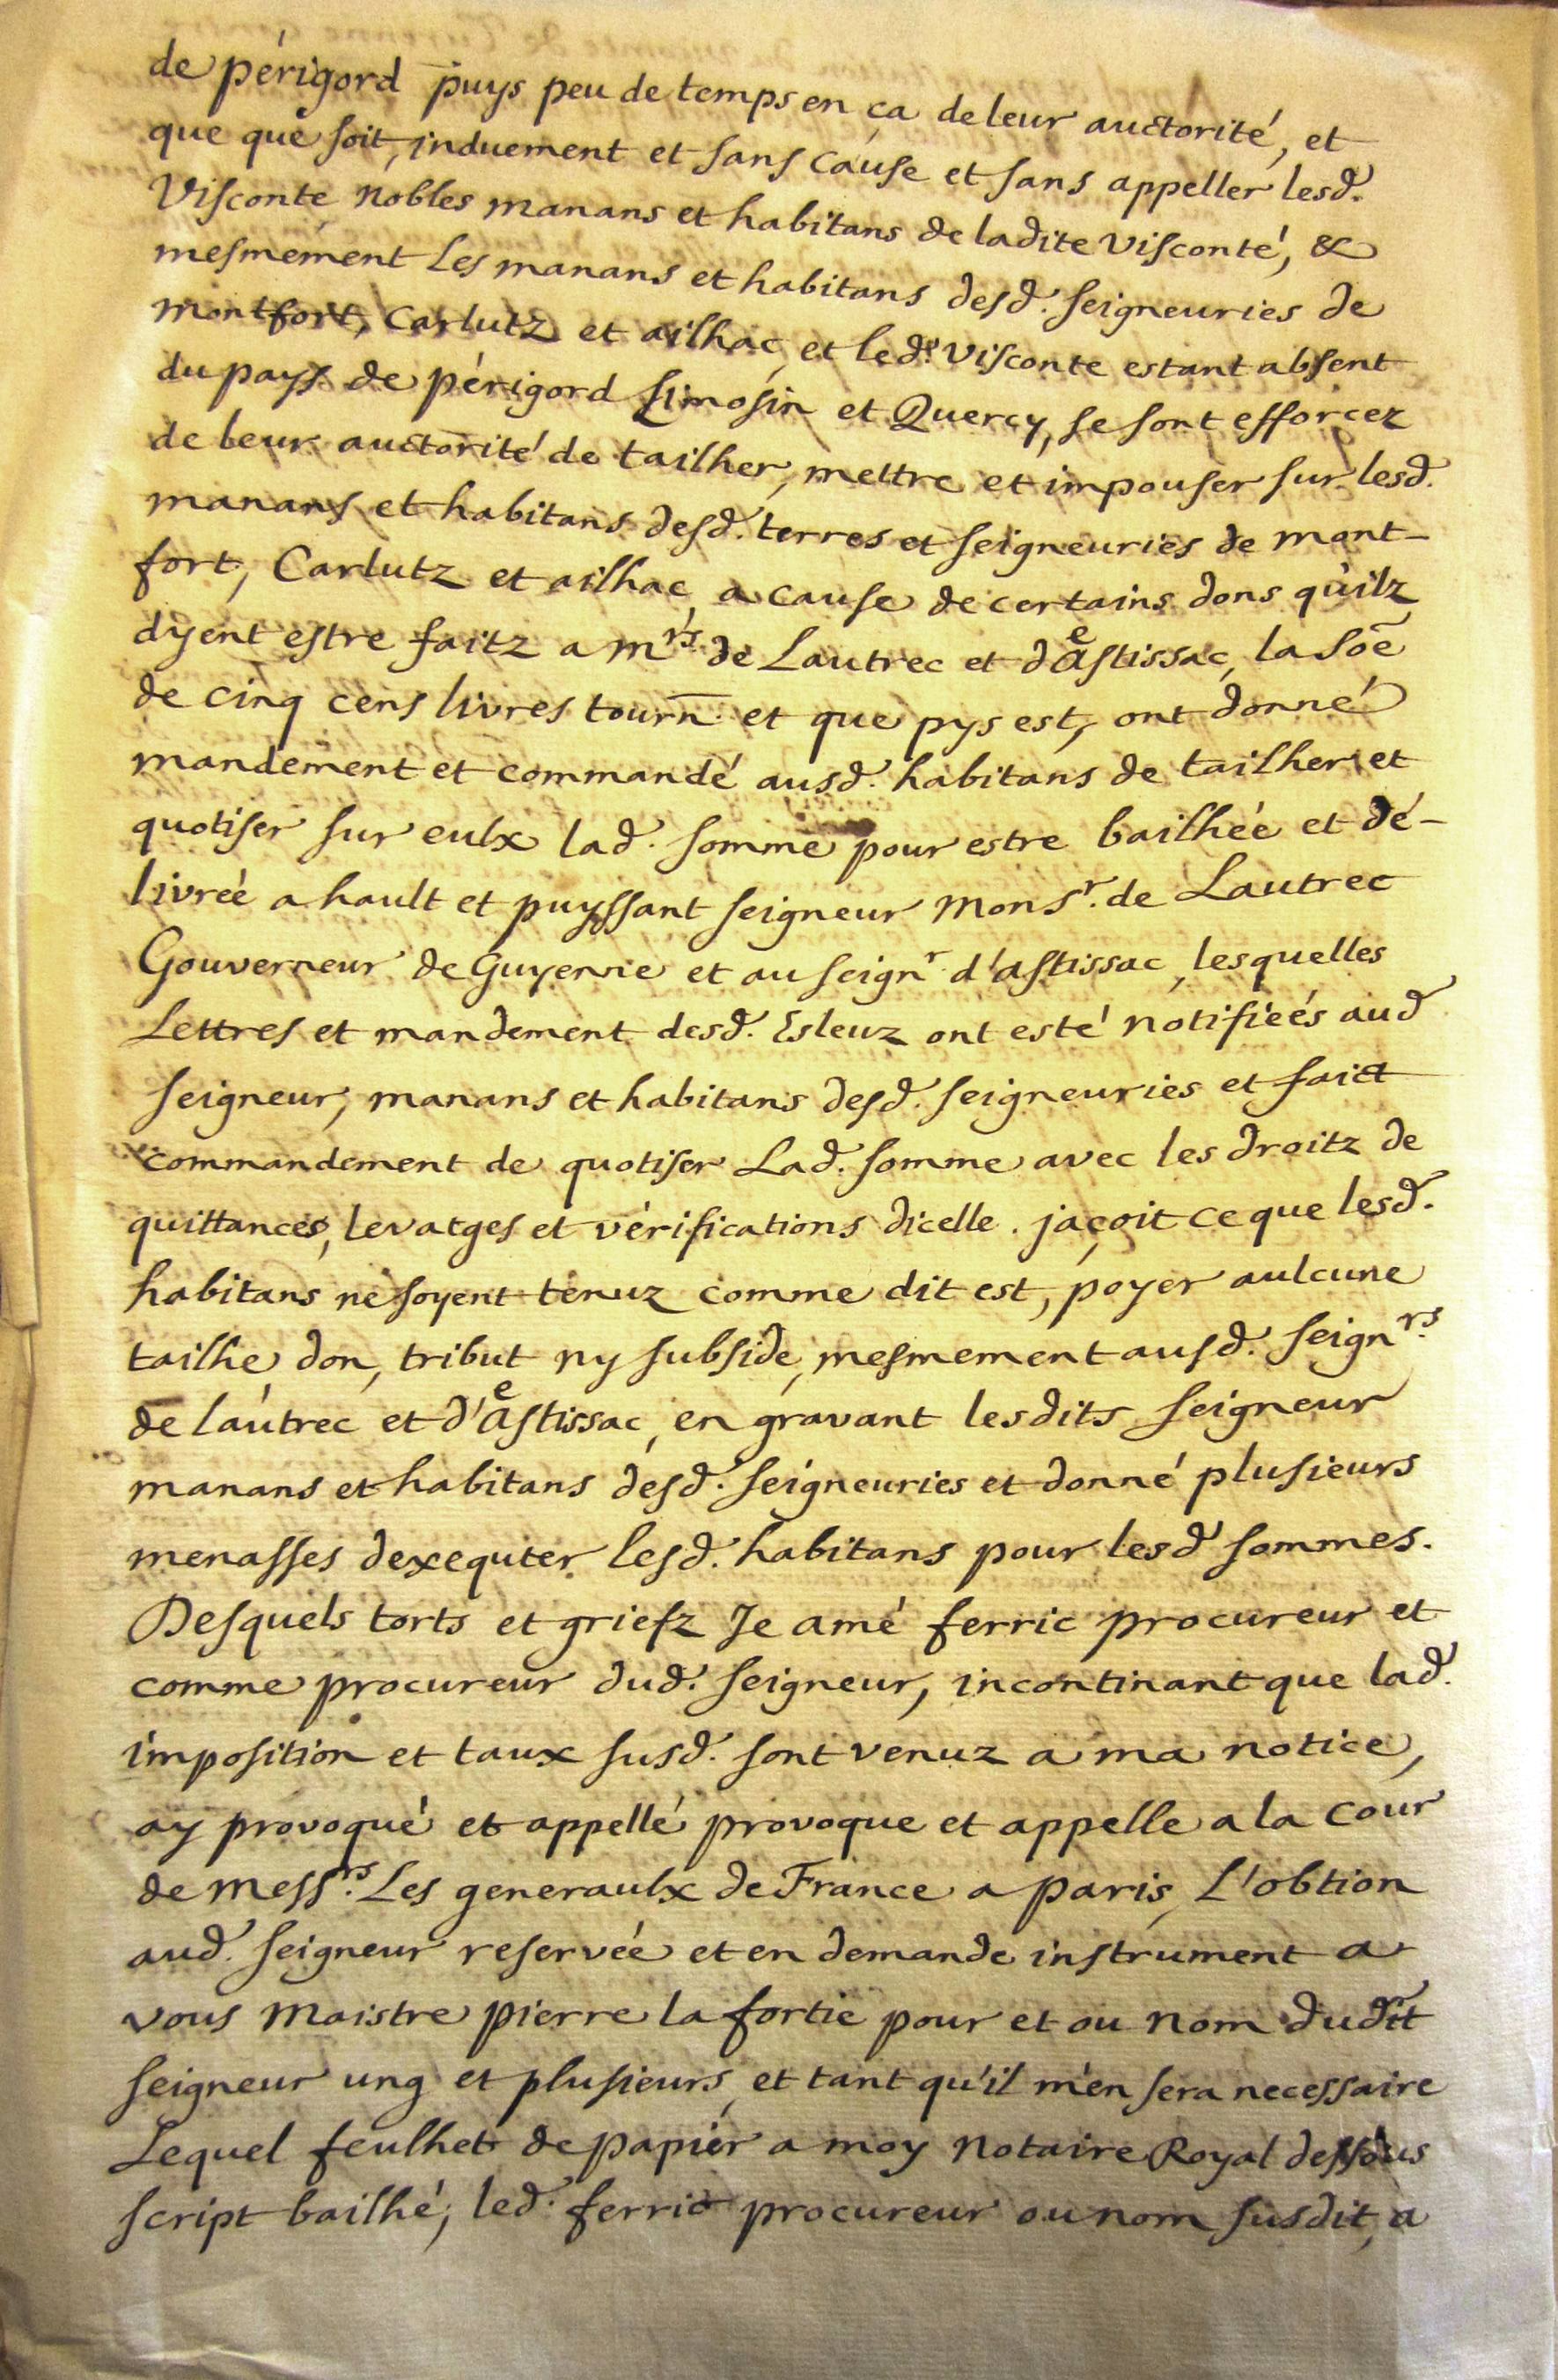 de périgord puys peu de temps en ça de leur auctorité, et
que que soit, induement et sans cause et sans appeller lesd.
Visconte nobles manans et habitans de ladite Visconté, &
mesmement Les manans et habitans desd. seigneuries de
montfort, Carlutz et ailhac, et led. Visconte estant absent
du pays de périgord Limosin et Quercy, se sont efforcez
de leur auctorité de tailher, mettre et impouser sur lesd.
manans et habitans desd. terres et seigneuries de mont-
fort, Carlutz et ailhac, a cause de certains dons qu'ilz
dyent estre faitz a mrs. de Lautrec et d'astissac, la sõe
de cinq cens livres tourn. et que pys est, ont donné
mandement et commandé ausd. habitans de tailher et
quotiser sur eulx lad. somme pour estre bailhée et dé-
livrée a hault et puyssant seigneur monsr. de Lautrec
Gouverneur de Guyenne et au seignr. d'astissac, lesquelles
Lettres et mandement desd. Esleuz ont esté notifiéés aud
seigneur, manans et habitans desd. seigneuries et faict
commandement de quotiser Lad. somme avec les droitz de
quittances, levatges et vérifications dicelle. jaçoit ce que lesd.
habitans ne soyent tenuz comme dit est, poyer aulcune
tailhe, don, tribut ny subside, mesmement ausd. seignrs.
de lautrec et d'astissac, en gravant lesdits seigneur
manans et habitans desd. seigneuries et donné plusieurs
menasses dexequter lesd. habitans pour lesd sommes.
Desquels torts et griefz Je amé ferric procureur et
comme procureur dud. seigneur, incontinant que lad.
imposition et taux susd. sont venuz a ma notice,
ay provoqué et appellé provoque et appelle a la Cour
de messrs. Les generaulx de France a paris, L'obtion
aud. seigneur reservée et en demande instrument a
vous maistre pierre la fortie pour et ou nom dudit
seigneur ung et plusieurs, et tant qu'il m'en sera necessaire
Lequel feulhet de papier a moy notaire Royal dessous
script bailhé, led. ferric procureur ou nom susdit, a